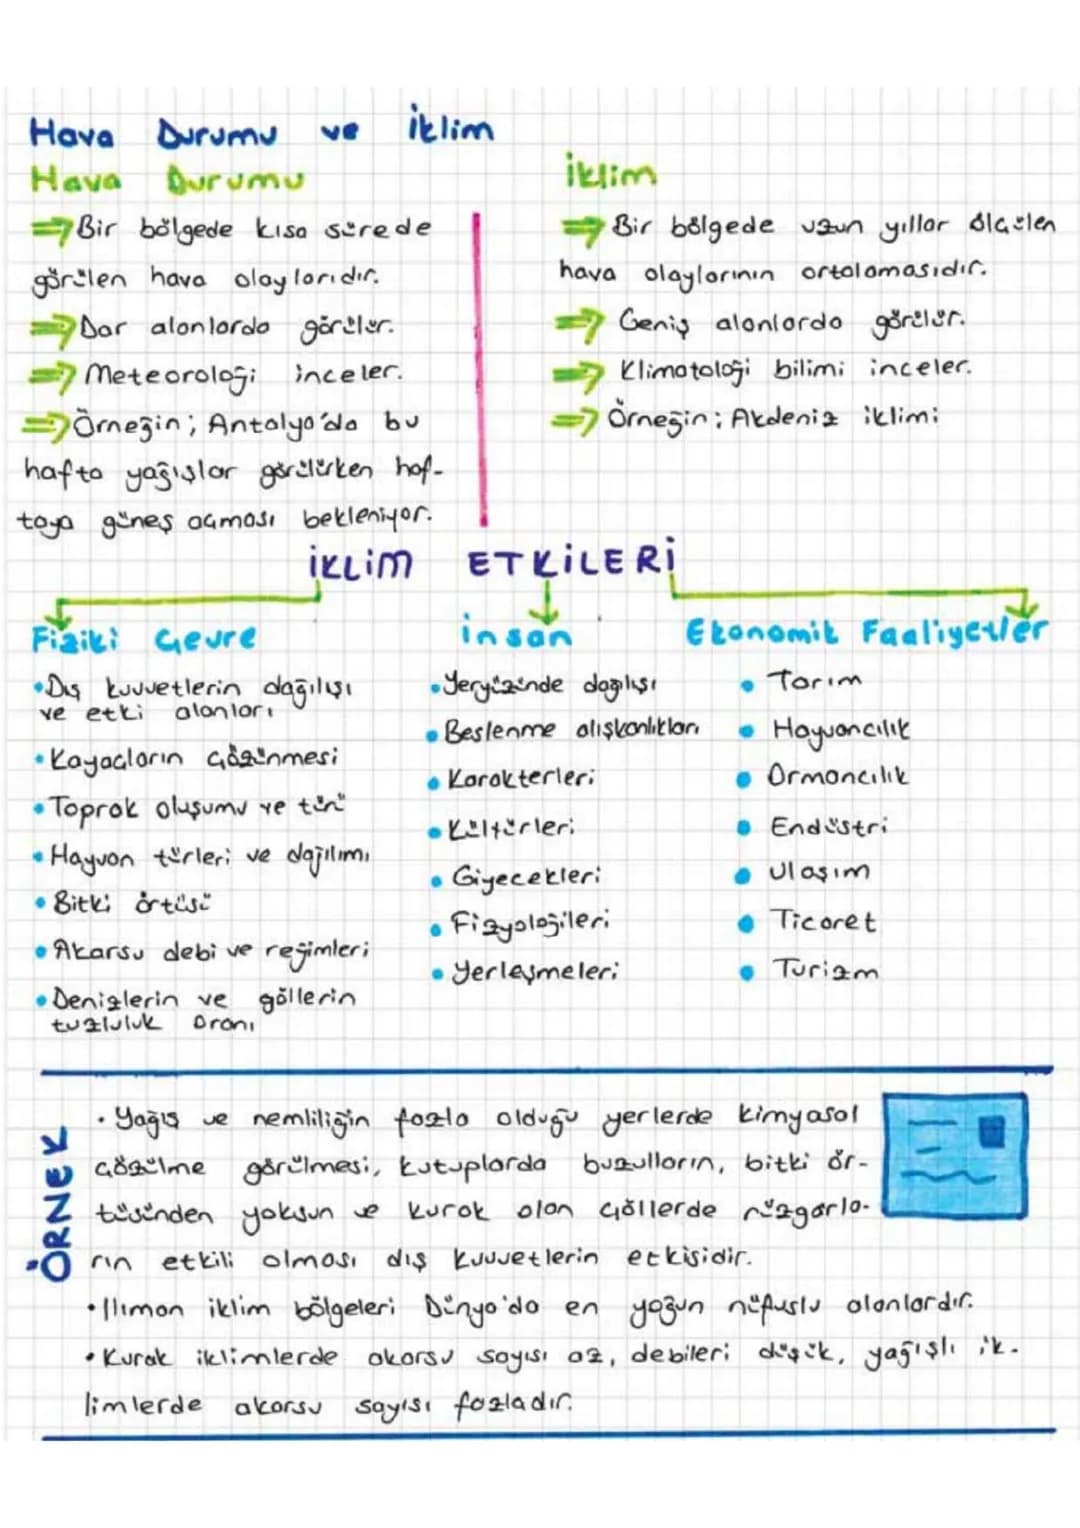 Hava Durumu ve İklim
Hava Durumu
⇒ Bir bölgede kısa sürede
görülen hava olaylarıdır.
⇒ Dar alanlarda görülür.
⇒ Meteoroloji inceler.
⇒ Örneğin; Antalya'da bu
hafta yağışlar görülürken haf-
taya güneş açması bekleniyor.
İklim
⇒ Bir bölgede uzun yıllar ölçülen
hava olaylarının ortalamasıdır.
⇒ Geniş alanlarda görülür.
⇒ Klimatoloji bilimi inceler.
⇒ Örneğin; Akdeniz iklimi
İKLİM ETKİLERİ
Fiziki Çevre
• Dış kuvvetlerin dağılışı
ve etki alanları
• Kayaçların çözünmesi
• Toprak oluşumu ve türü
• Hayvan türleri ve dağılımı
• Bitki örtüsü
• Akarsu debi ve rejimleri
• Denizlerin ve göllerin
tuzluluk oranı
insan
• Yeryüzünde dağılışı
• Beslenme alışkanlıkları
• Karakterleri
• Kültürleri
• Giyecekleri
• Fizyolojileri
• Yerleşmeleri
Ekonomik Faaliyetler
• Tarım
• Hayvancılık
• Ormancılık
• Endüstri
• Ulaşım
• Ticaret
• Turizm
ÖRNEK
• Yağış ve nemliliğin fazla olduğu yerlerde kimyasal
çözülme görülmesi, kutuplarda buzulların, bitki ör-
tüsünden yoksun ve kurak olan çöllerde rüzgarla-
rın etkili olması dış kuvvetlerin etkisidir.
• Ilıman iklim bölgeleri Dünya'da en yoğun nüfuslu alanlardır.
• Kurak iklimlerde akarsu sayısı az, debileri düşük, yağışlı ik-
limlerde akarsu sayısı fazladır.